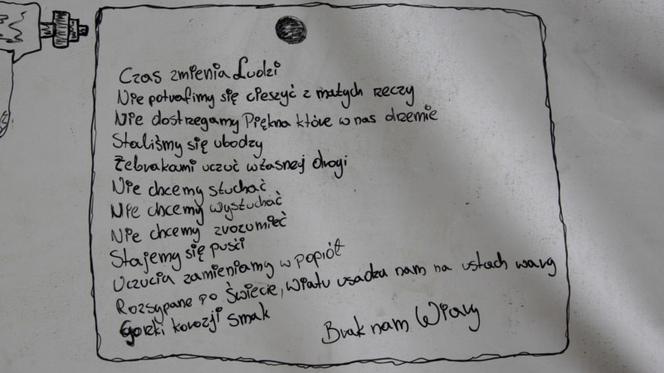 Czas zmienia Ludzi
Nie potrafimy się cieszyć z małych rzeczy
Nie dostrzegamy Piękna które w nas drzemie
Staliśmy się ubodzy
Żebrakami uczuć własnej drogi
Nie chcemy słuchać
Nie chcemy wysłuchać
Nie chcemy zrozumieć
Stajemy się puści
Uczucia zamieniamy w popiół
Rozsypane po Świecie, wiatr osadza nam na ustach warg
Gorzki korozji smak
Brak nam Wiary